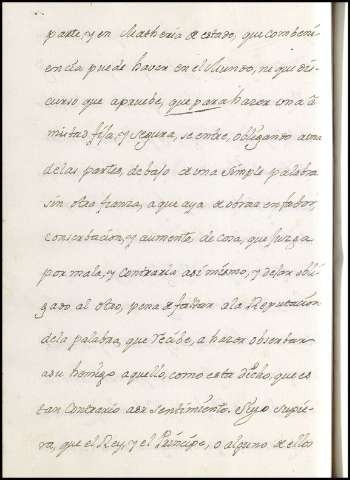 parte, y en Matheria de estado, que combeni-
encia puede haver en el Mundo, ni que dis-
curso que apruebe, que para hazer una a-
mistad fija, y segura, se entre, obligando a una
de las partes, debajo de una simple palabra
sin otra fianza, a que aya de obrar en fabor,
conserbacion, y aumento de cosa, que juzga
por mala, y contraria asi mismo, y dejar obli-
gado al otro, pena de faltar a la Reputacion
de la palabra, que recibe, a hazer observar
a su hemigo aquello, como esta dicho, que es
tan contrario a su sentimiento. Si yo supie-
ra, que el Rey, y el Principe, o alguno de ellos